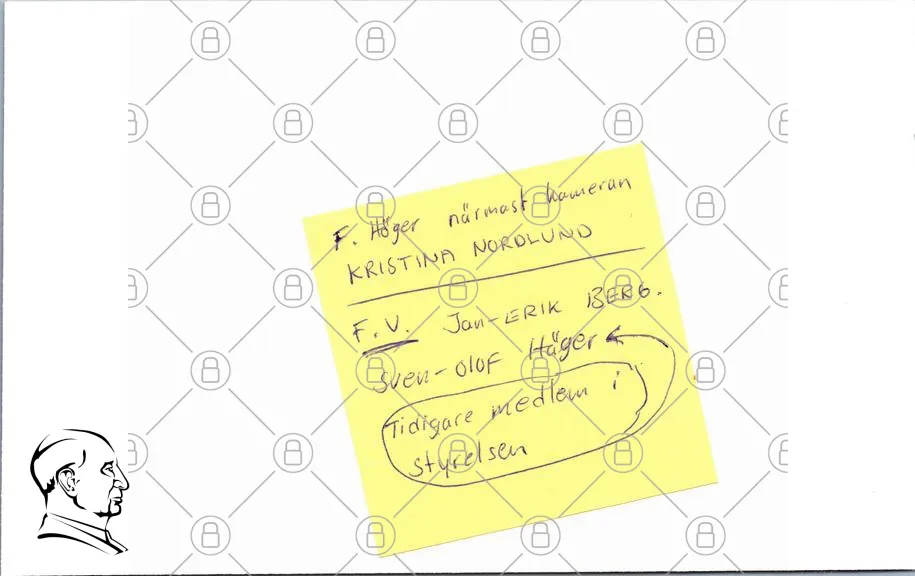 F. Höger närmast kameran
KRISTINA NORDLUND
F.V. Jan-ERIK BERG.
Sven-OLOF Häger
Tidigare medlem i
styrelsen